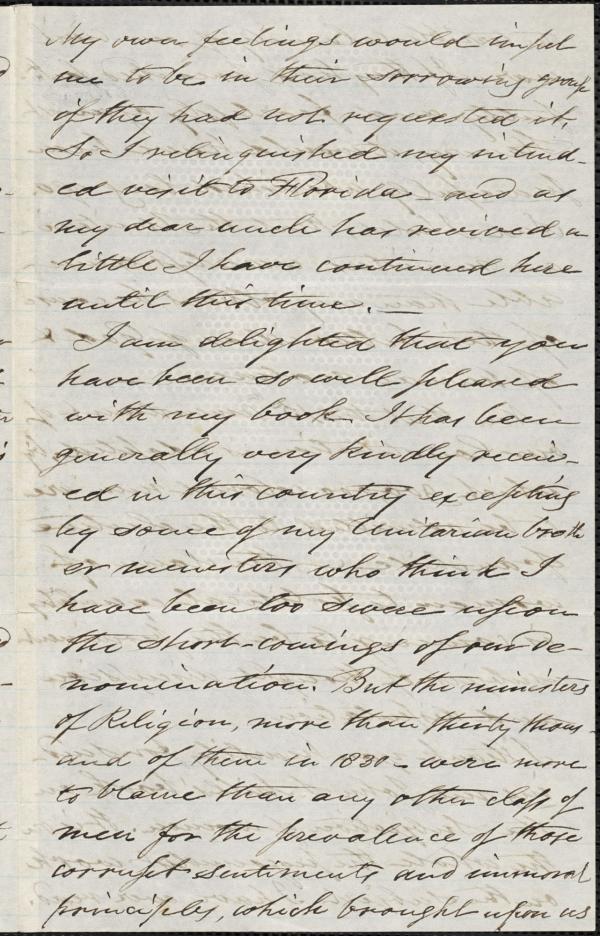 My own feelings would impel
me to be in their sorrowing group
if they had not requested it.
So I relinquished my intend-
ed visit to Florida - and as
my dear uncle has revived a
little I have continued here
until this time. —
I am delighted that you
have been so well pleased
with my book. It has been
generally very kindly receiv-
ed in this country excepting
by some of my Unitarian broth
er ministers who think I
have been too severe upon
the short-comings of our de-
nomination. But the ministers
of Religion, more than thirty thous-
and of them in 1830 - were more
to blame than any other class of
men for the prevalence of those
corrupt sentiments and immoral
principles, which brought upon us